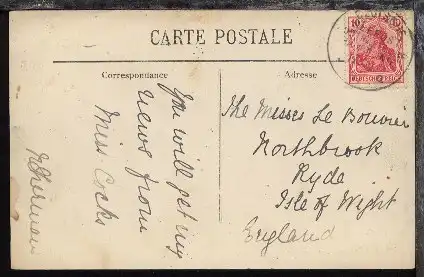 CARTE POSTALE
Correspondance
Adresse
10
DEUTSCHES REICH
You will get my
news from
Miss Cocks
The Misses Le Bouvier
Northbrook
Ryde
Isle of Wight
England